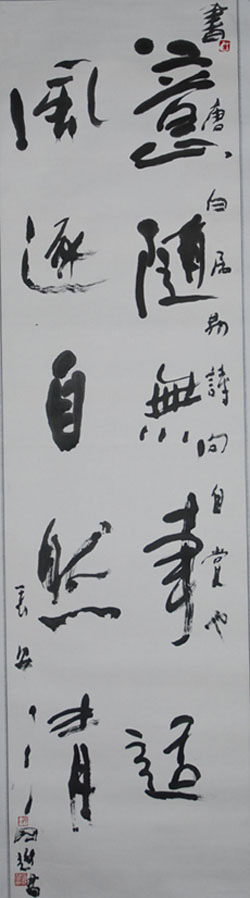 書唐白居易詩句自賞也
意隨無事適
風逐自然清
長安
書